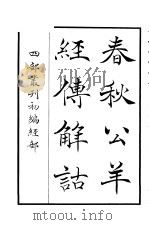 春秋公羊
經傳解詁
四部叢刊初編經部
mtoou.info